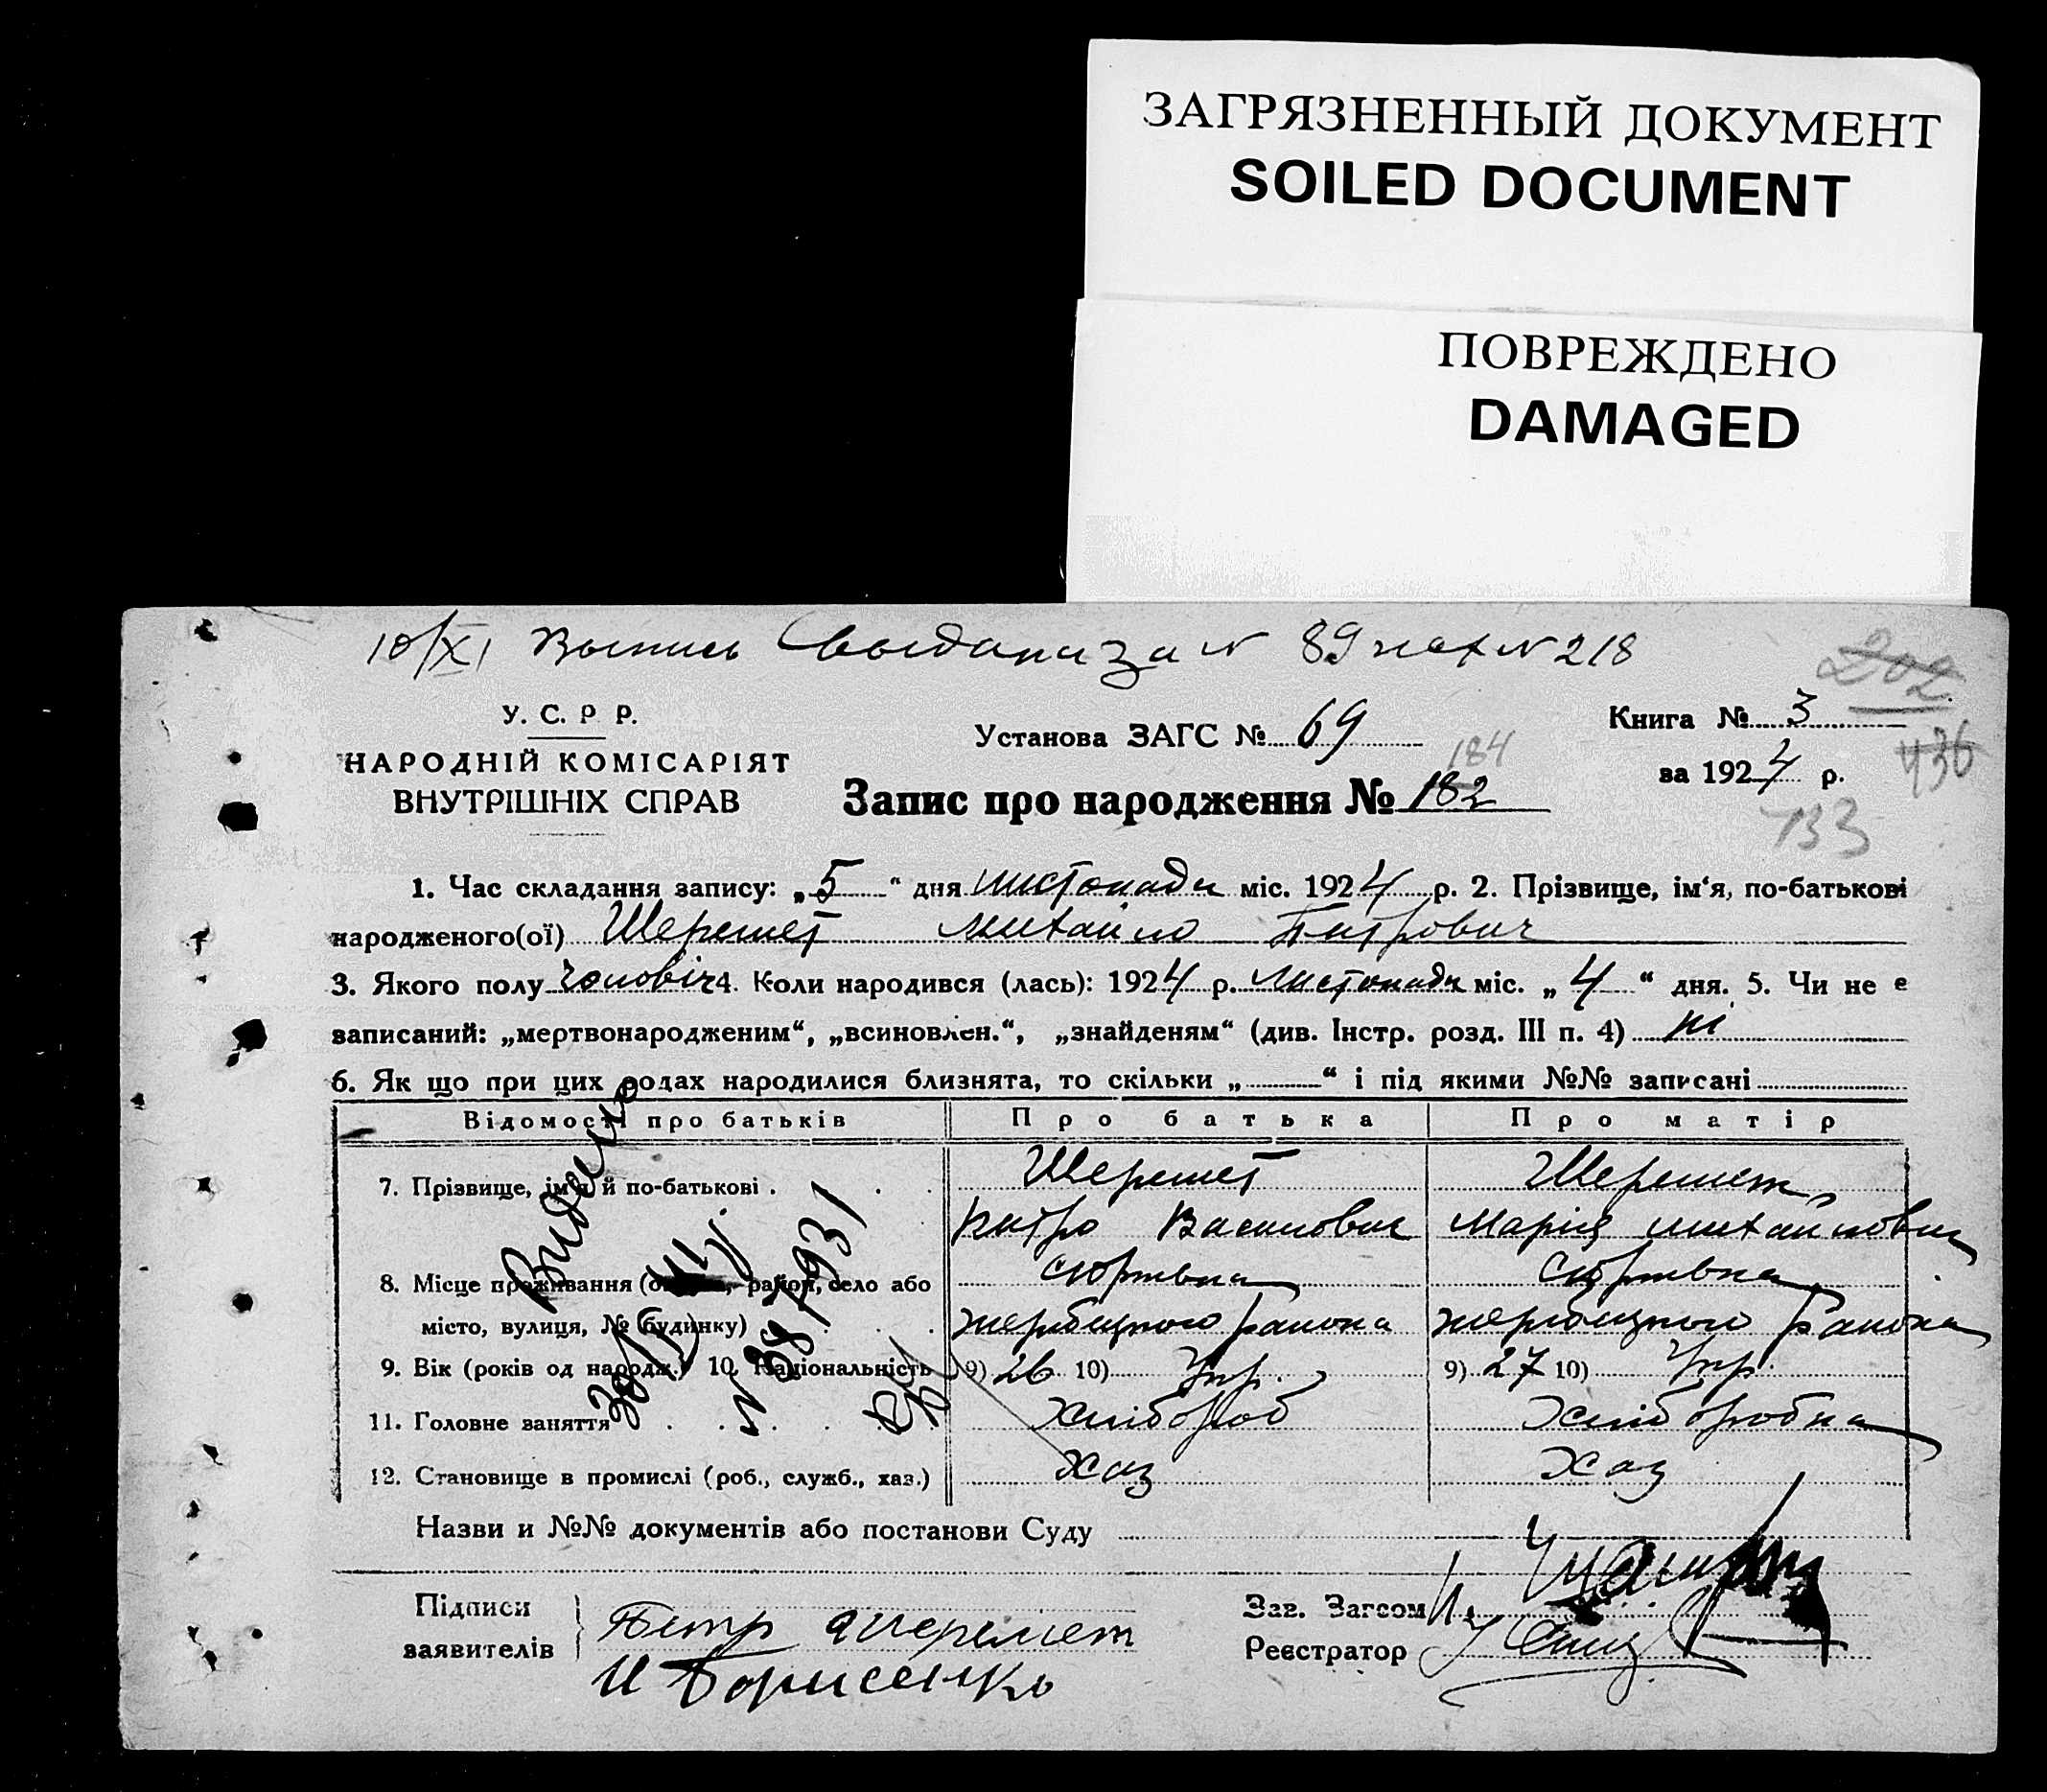 ЗАГРЯЗНЕННЫЙ ДОКУМЕНТ
SOILED DOCUMENT
ПОВРЕЖДЕНО
DAMAGED
10/XI Выпись выдана за № 89 № 218
202
У. С. Р Р.
НАРОДНІЙ КОМІСАРІЯТ
ВНУТРІШНІХ СПРАВ
Установа ЗАГС № 69
Книга № 3
за 1924 р.
436
184
Запис про народження № 182
133
1. Час складання запису: „5“ дня листопада міс. 1924 р. 2. Прізвище, ім‘я, по-батькові
народженого(ої) Шеремет Михайло Питрович
3. Якого полу чоловіч 4. Коли народився (лась): 1924 р. Листопада міс. „4“ дня. 5. Чи не е
записаний: „мертвонародженим“, „всиновлен.“, „знайденям“ (див. Інстр. розд. III п. 4) ні
6. Як що при цих родах народилися близнята, то скільки „ “ і під якими №№ записані
Відомості про батьків Про батька Про матір
7. Прізвище, ім'я й по-батькові . Шеремет Шеремет
Питро Василович Марія Михайловна
8. Місце проживання (округа, район, село або
місто, вулиця, № будинку) района района
9. Вік (років од народж.) 10. Національність 9) 26 10) Укр. 9) 27 10) Укр.
11. Головне заняття Хлібороб Хлібборобка
12. Становище в промислі (роб., служб., хаз.) Хаз Хаз
Видано
№ 38 1931
Назви и №№ документів або постанови Суду
Підписи
заявителів
Петр Шеремет
И Борисенко
Зав. Загсом
Реєстратор